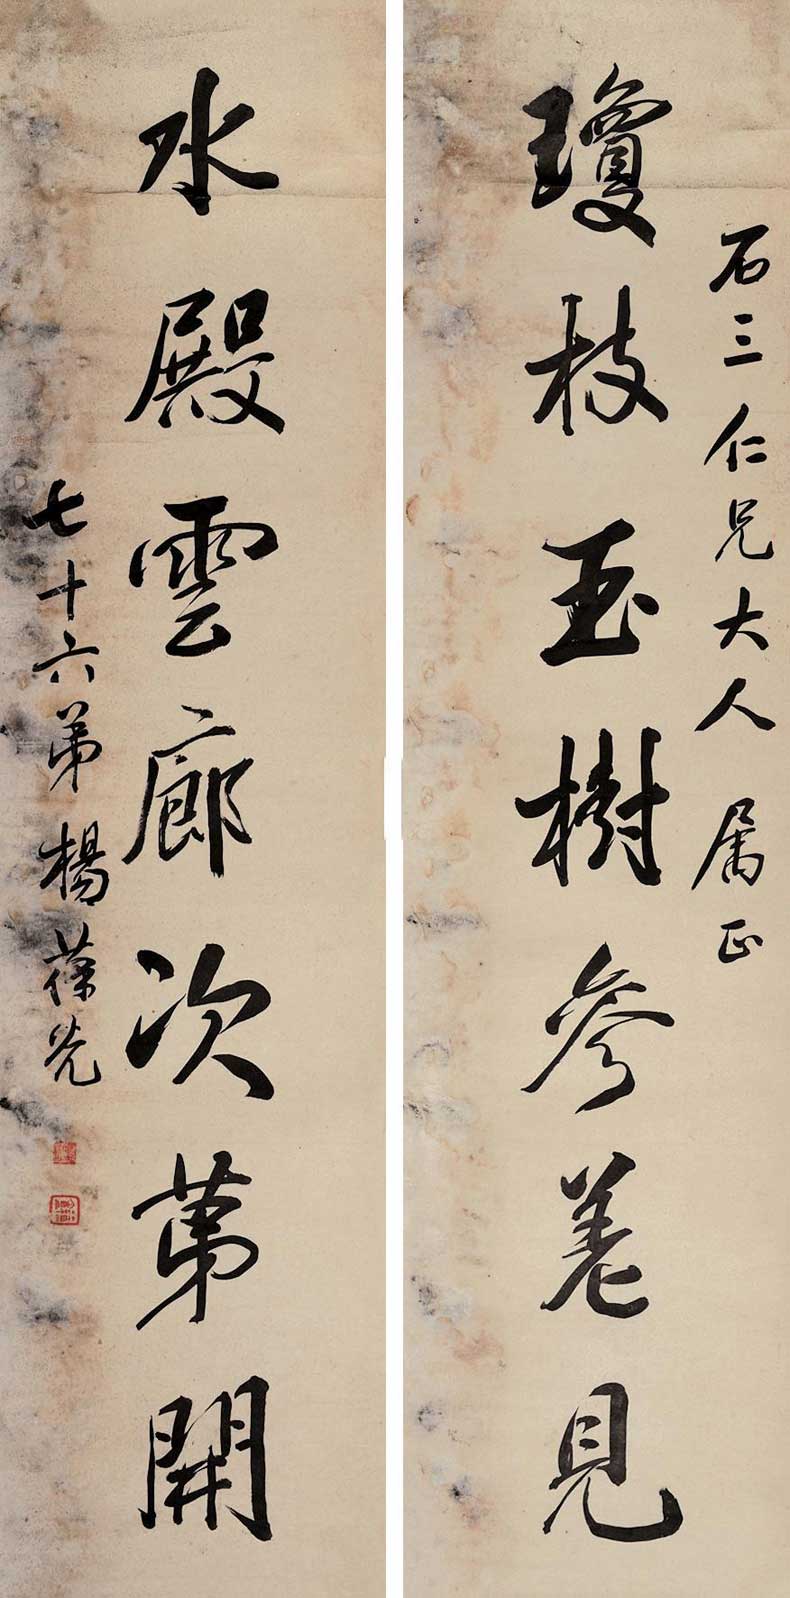 石三仁兄大人 属正
瓊枝玉樹參差見
水殿雲廊次第開
七十六弟楊葆光